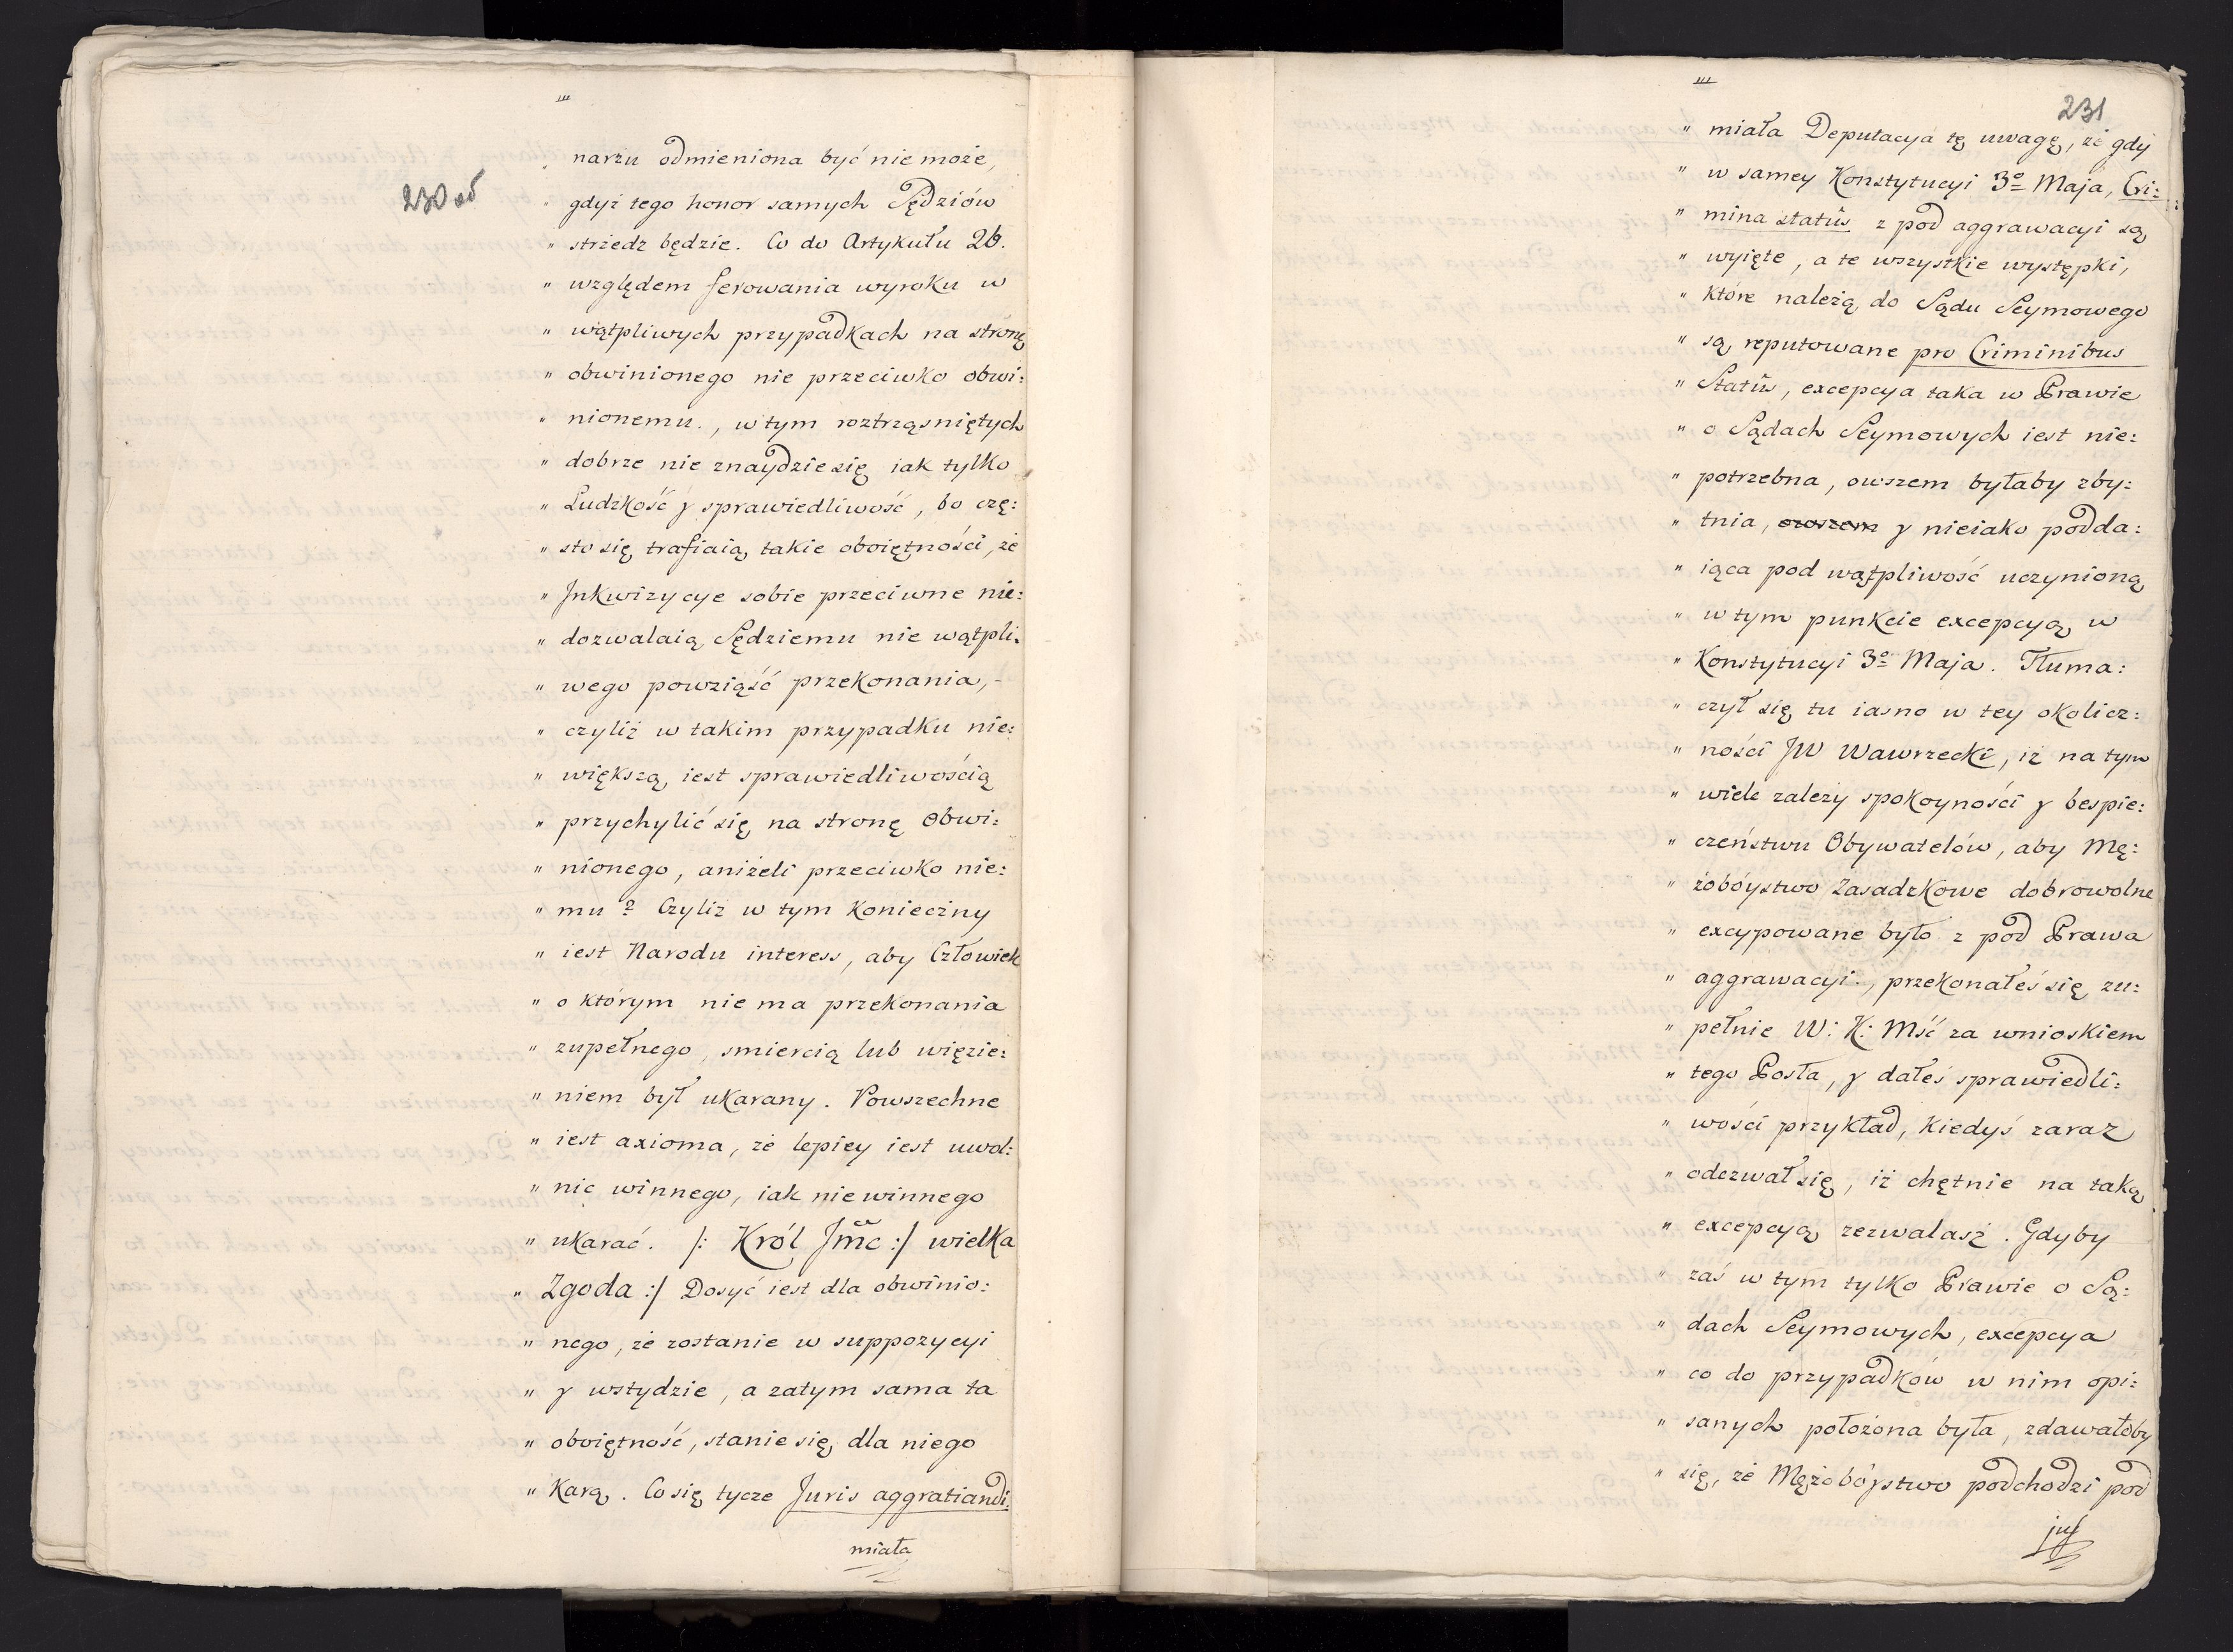 '''
230 об
„ narzu odmieniona być nie może,
„ gdyż tego honor samych Sędziów
„ strzedz będzie. Co do Artykułu 26.
„ względem ferowania wyroku w
„ wątpliwych przypadkach na stronę
„ obwinionego nie przeciwko obwi:
„ nionemu., w tym roztrząsniętych
„ dobrze nie znaydzie się iak tylko
„ Ludzkość y sprawiedliwość, bo czę:
„ sto się trafiaią takie oboiętności, że
„ Inkwizycye sobie przeciwne nie:
„ dozwalaią Sędziemu nie wątpli:
„ wego powziąść przekonania,-
„ czyliż w takim przypadku nie:
„ większą iest sprawiedliwością
„ przychylić się na stronę Obwi:
„ nionego, aniżeli przeciwko nie:
„ mu? Czyliż w tym konieczny
„ iest Narodu interess, aby Człowiek
„ o którym nie ma przekonania
„ zupełnego, smiercią lub więzie:
„ niem był ukarany. Powszechne
„ iest axioma, że lepiey iest uwol:
„ nić winnego, iak niewinnego
„ ukarać. /: Król Jmć :/ wielka
„ Zgoda :/ Dosyć iest dla obwinio:
„ nego, że zostanie w suppozycyi
„ y wstydzie, a zatym sama ta
„ oboiętność, stanie się dla niego
„ Karą. Co się tycze Juris aggratiandi
miała
'''
231
„ miała Deputacya tę uwagę, że gdy
„ w samey Konstytucyi 3o Maja, Cri:
„ mina status z pod aggrawacyi są
„ wyięte, a te wszystkie występki,
„ które należą do Sądu Seymowego
„ są reputowane pro Criminibus
„ Status, excepcya taka w Prawie
„ o Sądach Seymowych iest nie:
„ potrzebna, owszem byłaby zby:
„ tnia, owszem y nieiako podda:
„ iąca pod wątpliwość uczynioną
„ w tym punkcie excepcyą w
„ Konstytucyi 3o Maja. Tłuma:
„ czył się tu iasno w tey okolicz:
„ ności JW Wawrzecki, iż na tym
„ wiele zależy spokoyności y bespie:
„ czeństwu Obywatelów, aby Mę:
„ żobóystwo Zasadzkowe dobrowolne
„ excypowane było z pod Prawa
„ aggrawacyi., przekonałeś się zu:
„ pełnie W: K: Mść za wnioskiem
„ tego Posła, y dałeś sprawiedli:
„ wości przykład, kiedyś zaraz
„ odezwał się, iż chętnie na taką
„ excepcyą zezwalasz. Gdyby
„ zaś w tym tylko Prawie o Są:
„ dach Seymowych, excepcya
„ co do przypadków w nim opi:
„ sanych położona była, zdawałoby
„ się, że Mężobóystwo podchodzi pod
jus